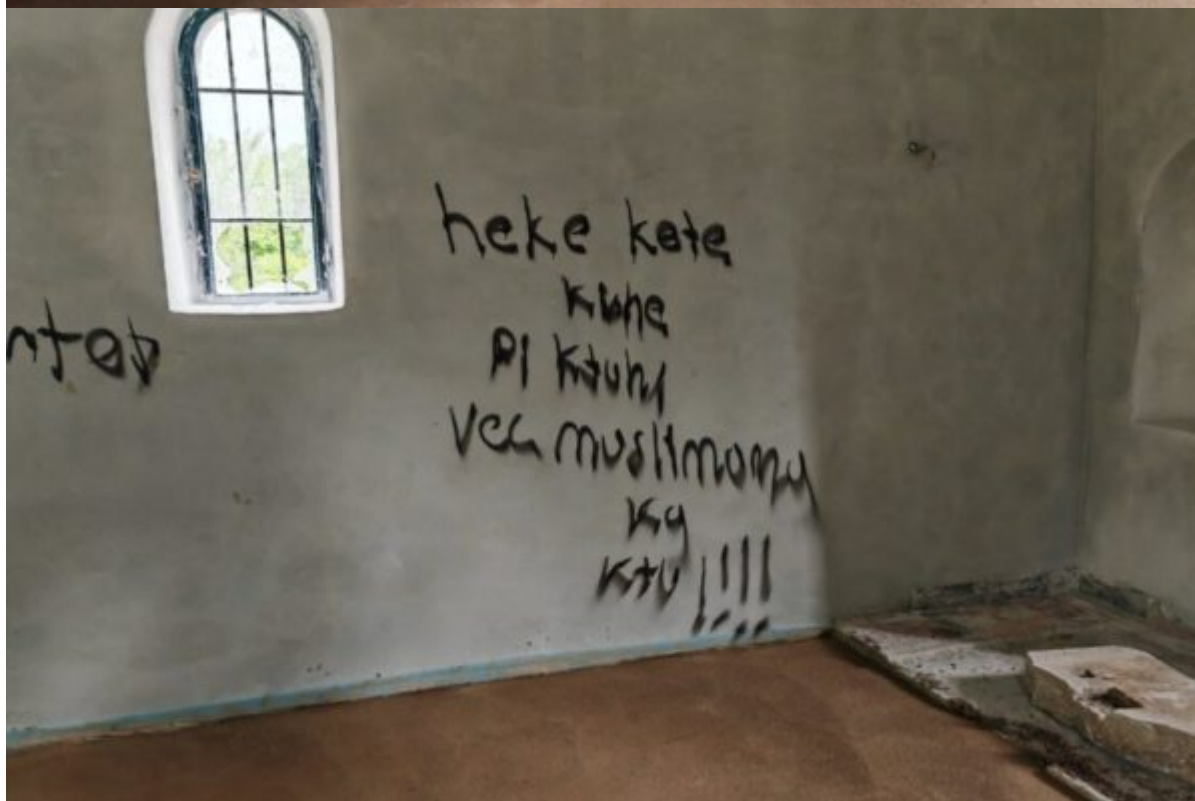 heke kete
kishe
pi ktuhi
vec muslimony
ka
ktu !!!!